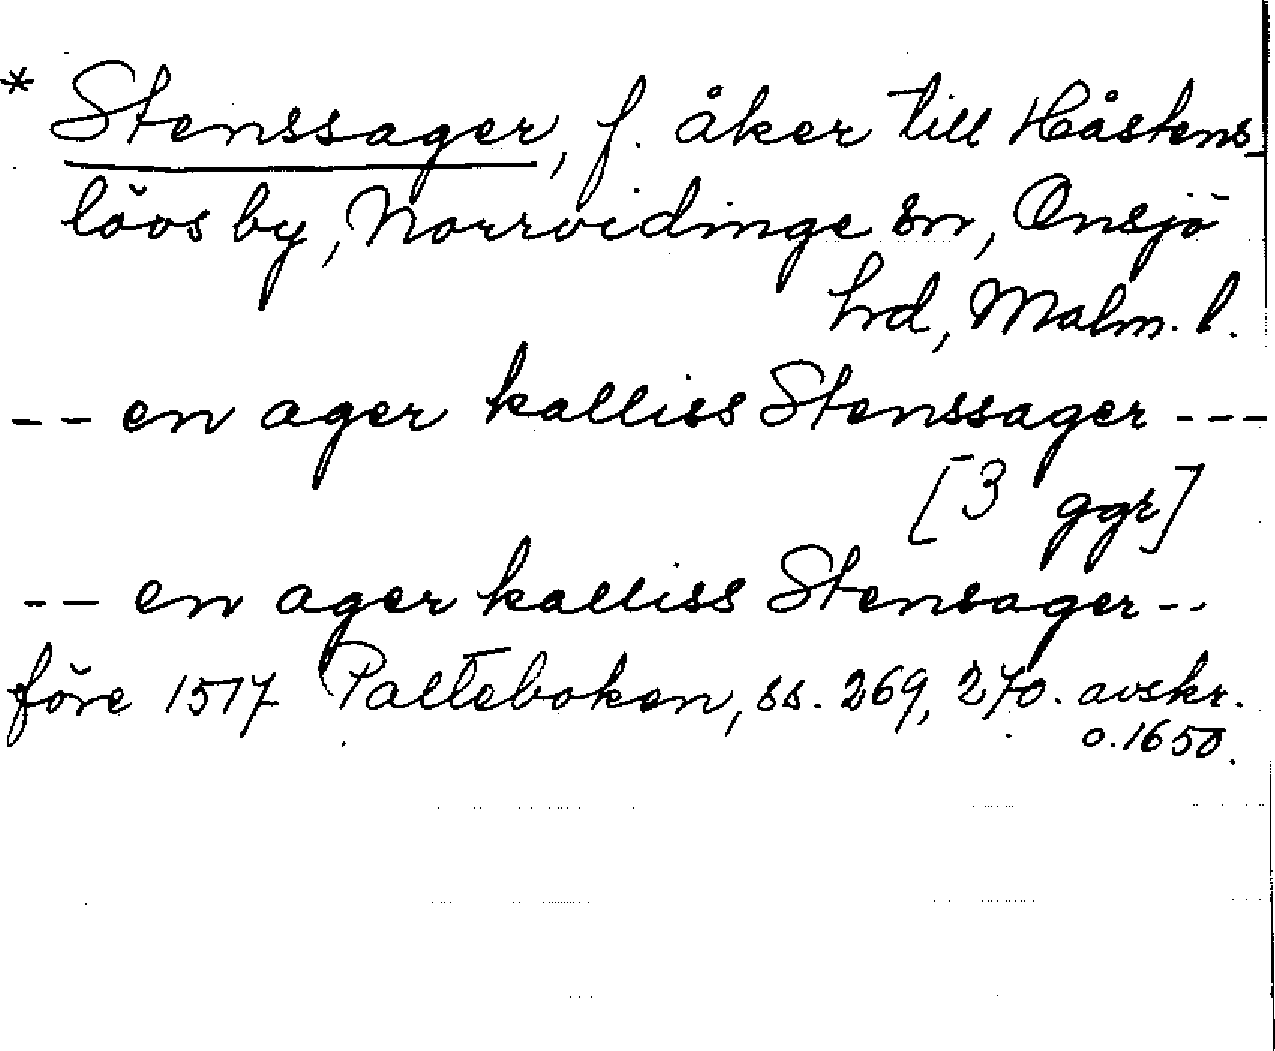 * Stenssager, f. åker till Håstens-
lövs by, Norrvidinge sn, Onsjö
hrd, Malm. l.
-- en ager kalliss Stenssager ---
[3 ggr]
-- en ager kalliss Stensager --
före 1517 Palteboken, ss. 269, 270. avskr.
o. 1650.